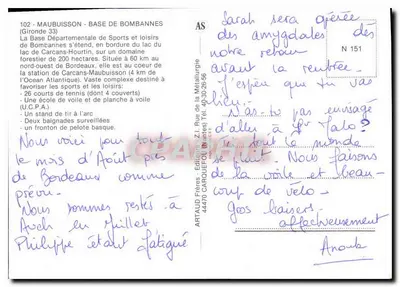 102 - MAUBUISSON - BASE DE BOMBANNES
(Gironde 33)
La Base Départementale de Sports et loisirs
de Bombannes s'étend, en bordure du lac du
lac de Carcans-Hourtin, sur un domaine
forestier de 200 hectares. Située à 60 km au
nord-ouest de Bordeaux, elle est au coeur de
la station de Carcans-Maubuisson (4 km de
l'Océan Atlantique). Complexe destiné à
favoriser les sports et les loisirs :
- 26 courts de tennis (dont 4 couverts)
- Une école de voile et de planche à voile
(U.C.P.A.)
- Un stand de tir à l'arc
- Deux baignades surveillées
- un fronton de pelote basque.
Nous voici pour tout
le mois d'Août près
de Bordeaux comme
prévu.
Nous sommes restés à
Auch en Juillet
Philippe étant fatigué
AS
ARTAUD Frères - EDITEURS - Z.I. Rue de la Métallurgie
44470 CARQUEFOU (Nantes) Tél. 40-30-29-56
N 151
Sarah sera opérée
des amygdales dès
notre retour
avant la rentrée.
J'espère que tu vas
bien.
N'as-tu pas envisagé
d'aller à St Malo?
tout le monde
se suit. Nous faisons
de la voile et beau-
coup de vélo.
Gros baisers.
affectueusement
Anouk